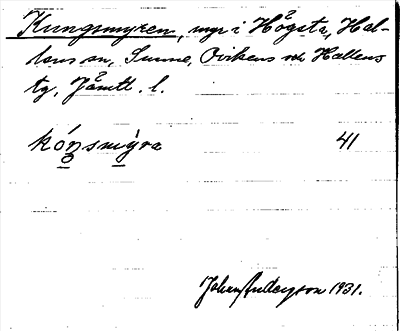 Kungsmyren, myr i Högsta, Hal-
lens sn, Sunne, Ovikens och Hallens
tg, Jämtl. l.
kóŋsmy̆ra 41
Johan Anderzon 1931.